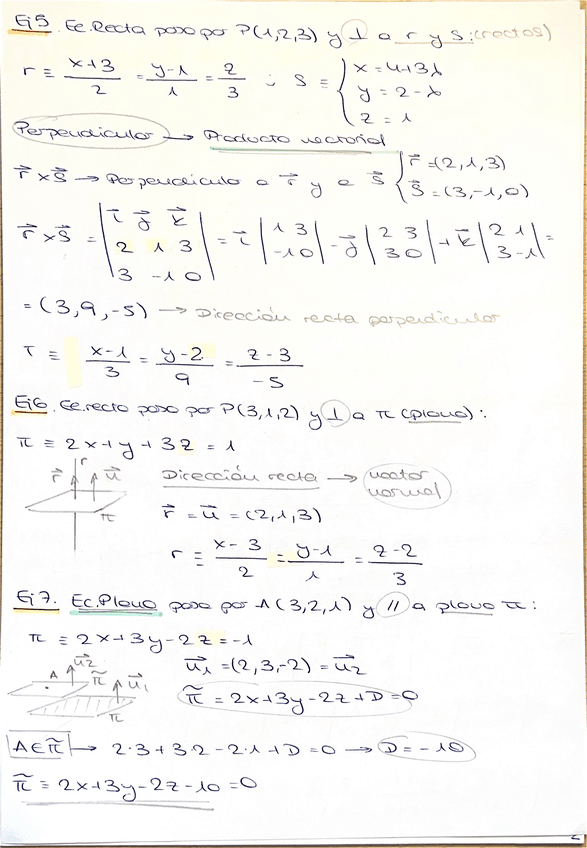 Ej5. Ec.Recta pasa por P(1,2,3) y ⊥ a r y s: (rectas)
r ≡ x+3/2 = y-1/1 = z/3 ; s ≡ { x = 4+3λ
y = 2-λ
z = 1
Perpendicular → Producto vectorial
r⃗ x s⃗ → Perpendicular a r⃗ y a s⃗ { r⃗ = (2,1,3)
s⃗ = (3,-1,0)
r⃗ x s⃗ = | i⃗ j⃗ k⃗ | 2 1 3 | 3 -1 0 | = i⃗ | 1 3 | -1 0 | - j⃗ | 2 3 | 3 0 | + k⃗ | 2 1 | 3 -1 | =
= (3,9,-5) → Dirección recta perpendicular
T ≡ x-1/3 = y-2/9 = z-3/-5
Ej6. Ec.recta pasa por P(3,1,2) y ⊥ a π (plano):
π ≡ 2x+y+3z = 1
r
r⃗ u⃗ Dirección recta → vector normal
π
r⃗ = u⃗ = (2,1,3)
r ≡ x-3/2 = y-1/1 = z-2/3
Ej7. Ec.Plano pasa por A(3,2,1) y // a plano π:
π ≡ 2x+3y-2z = -1
u⃗1 = (2,3,-2) = u⃗2
A u⃗2 π̃ u⃗1 π
π̃ = 2x+3y-2z+D = 0
A∈π̃ → 2·3+3·2-2·1+D = 0 → D = -10
π̃ ≡ 2x+3y-2z-10 = 0